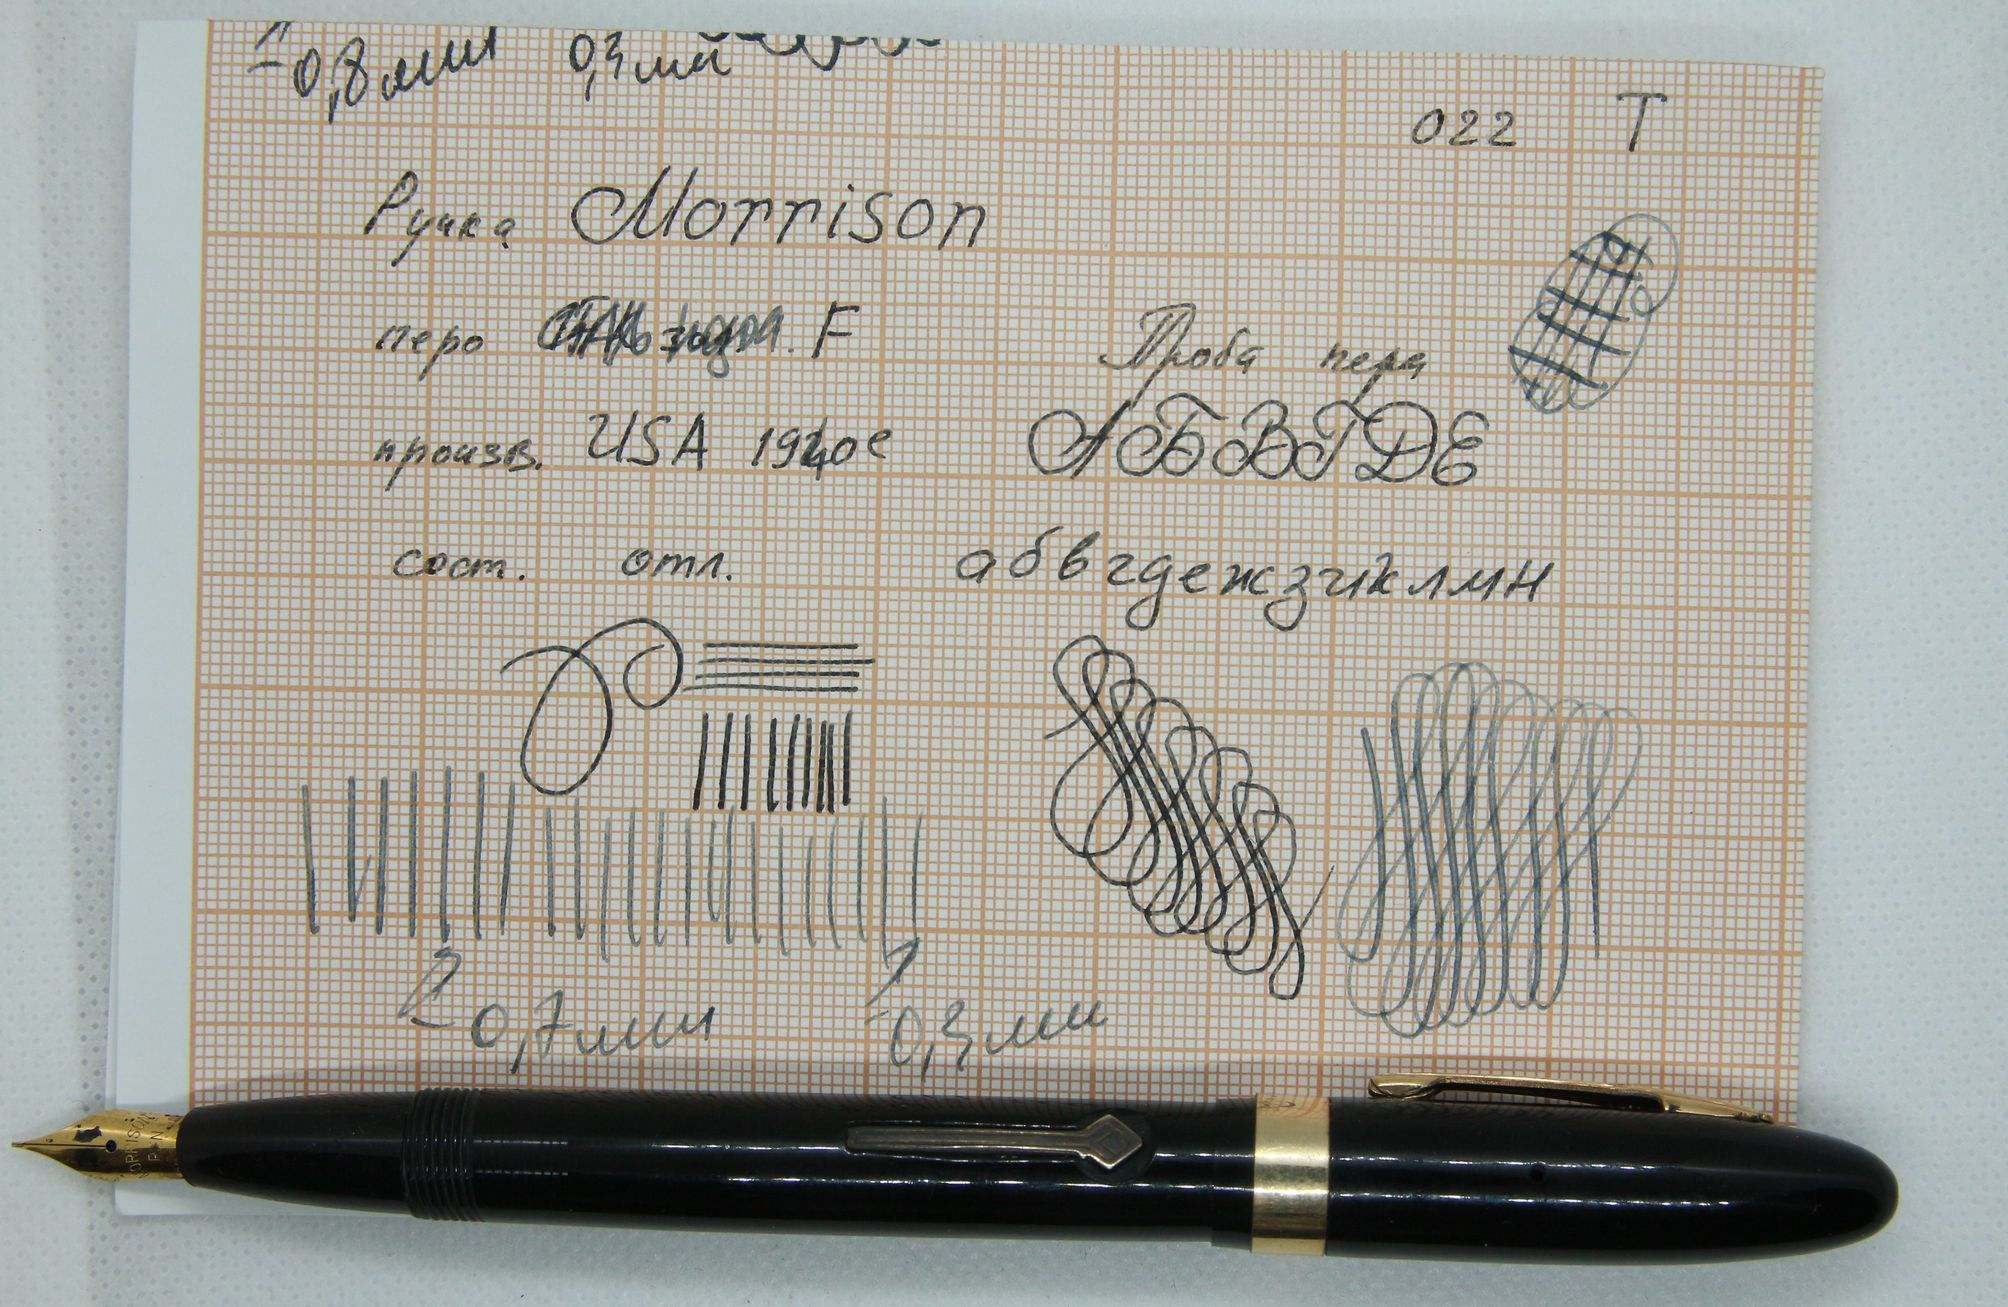 0,8мм 0,3мм
022 Т
Ручка Morrison
перо F
Проба пера
произв. USA 1940е
АБВГДЕ
сост. отл.
абвгдежзиклмн
0,7мм 0,3мм
MORRISON
PEN